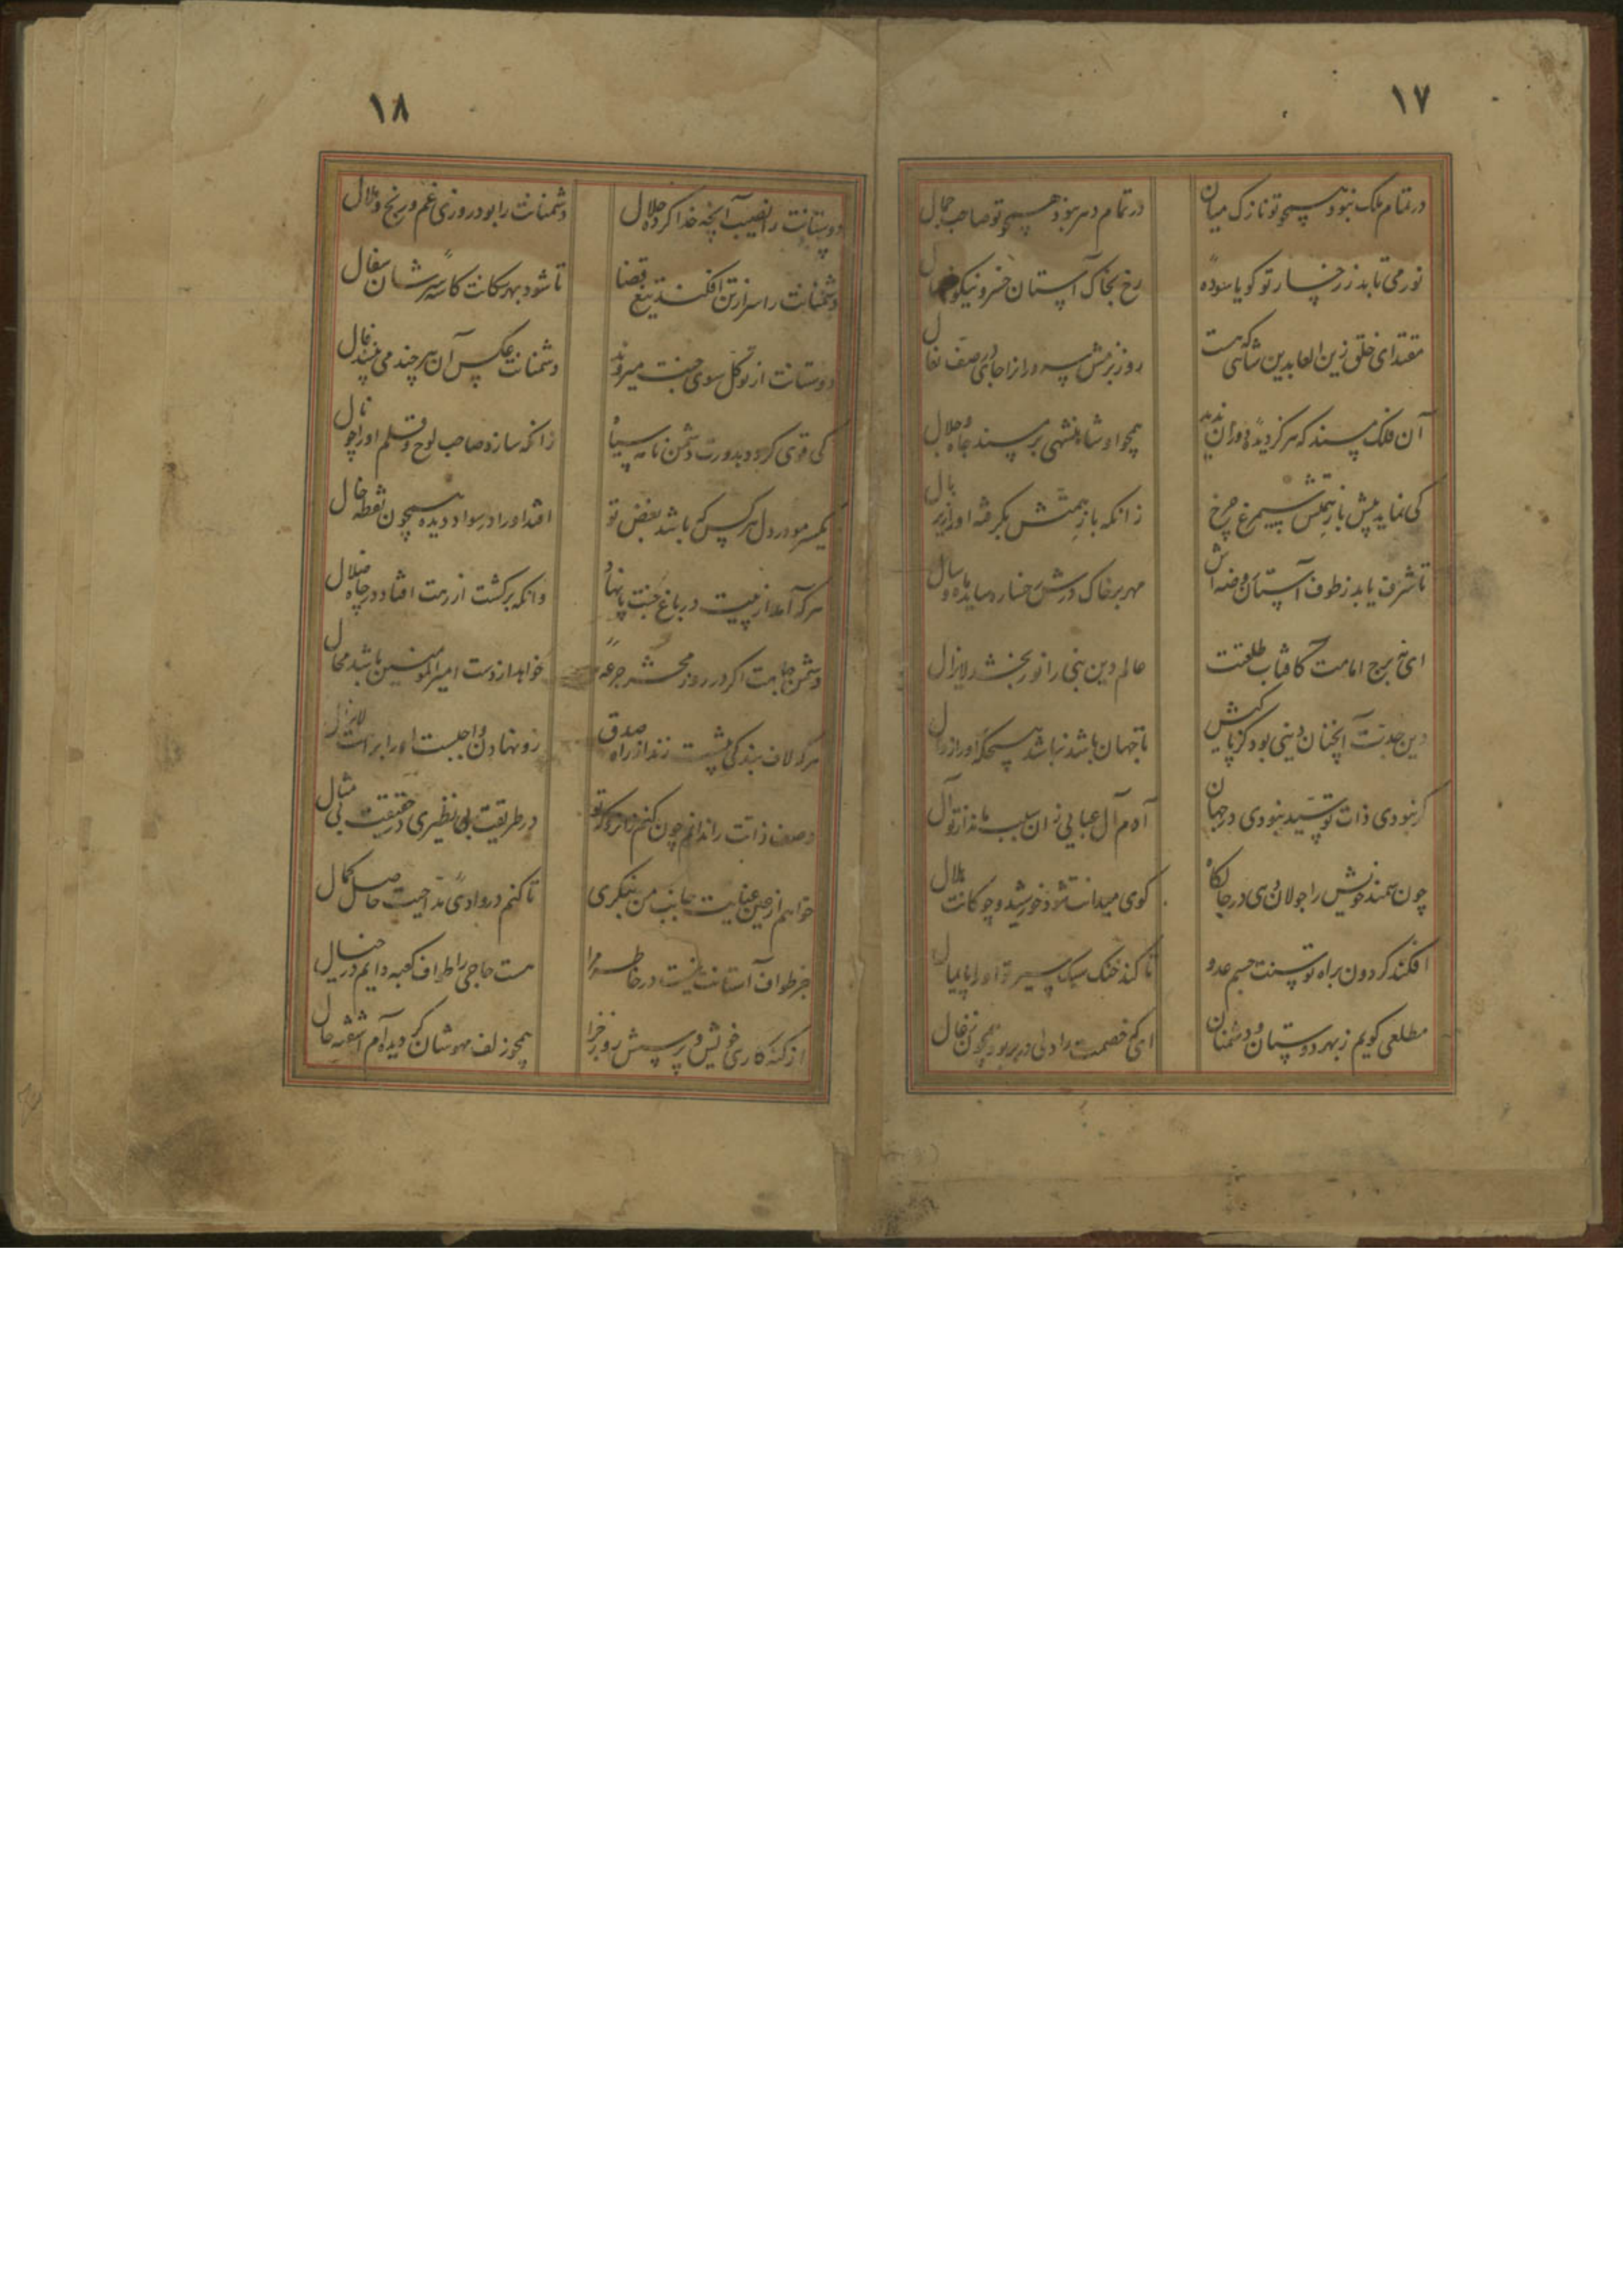 ١٧
در تمام ملک نبود هیچو تو نازک میان در تمام دهر نبود هیچو تو صاحب جمال
نور می تابد ز رخسار تو کویا سوده رخ بخاک آستان خسرو نیکو
مقتدای خلق زین العابدین شاهی که هست روز بزمش در صف نعال
آن فلک مسند که هرگز دیده دوران ندید همچو او شاهنشهی بر مسند جاه و جلال
کی نماید پیش باز همتش سیمرغ چرخ زانکه باز همتش بگرفته او را زیر بال
تا شرف یابد ز طوف آستان روضه اش مهر بر خاک درش رخساره ساید ماه و سال
ای مه برج امامت کافتاب طلعتت عالم دین نبی را نور بخشد لایزال
دین جدت آنچنان دینی بود کز پاکیش تا جهان باشد نباشد هیچکه او را زوال
گر نبودی ذات تو سید نبودی در جهان آدم آل عبایی زان سبب ماند از تو آل
چون سمند خویش را جولان دهی در جلوه گاه کوی میدانت شود خورشید و چوکانت هلال
افکند کردون براه توسنت جسم عدو تا کند خنک سبک سیر تو او را پایمال
مطلعی کویم ز بهر دوستان و دشمنان ای که خصمت را دلی در بر بود همچون زغال
١٨
دوستانت را نصیب آنچه خدا کرده حلال دشمنانت را بود روزی غم و رنج و ملال
دشمنانت را سر از تن افکند تیغ قضا تا شود بهر سکانت کاسه سرشان سفال
دوستانت از توکل سوی جنت میروند دشمنانت عکس آن هر چند می بینند فال
کی قوی کردد بدورت دشمن نامه سیاه زانکه سازد صاحب لوح و قلم او را چو نال
یکسر مو در دل هر کس که باشد بغض تو افتد او را در سواد دیده همچون نقطه خال
هر که آمد از پیت در باغ جنت پا نهاد وانکه برکشت از رهت افتاد در چاه ضلال
دشمن جاهت اگر در روز محشر جرعه خواهد از دست امیرالمؤمنین باشد محال
هر که لاف بندکی پیشت زند از راه صدق رو نهادن واجبست او را برآن
وصف ذاتت را ندانم چون کنم در طریقت بی نظیری در حقیقت بی مثال
خواهم از عین عنایت جانب من بنکری تا کنم در وادی مداحیت حاصل کمال
جز طواف آستانت نیست در خاطر مرا هست حاجی را طواف کعبه دایم در خیال
از کنه کاری خویش و پرسش روز جزا همچو زلف مهوشان کردیده ام آشفته حال